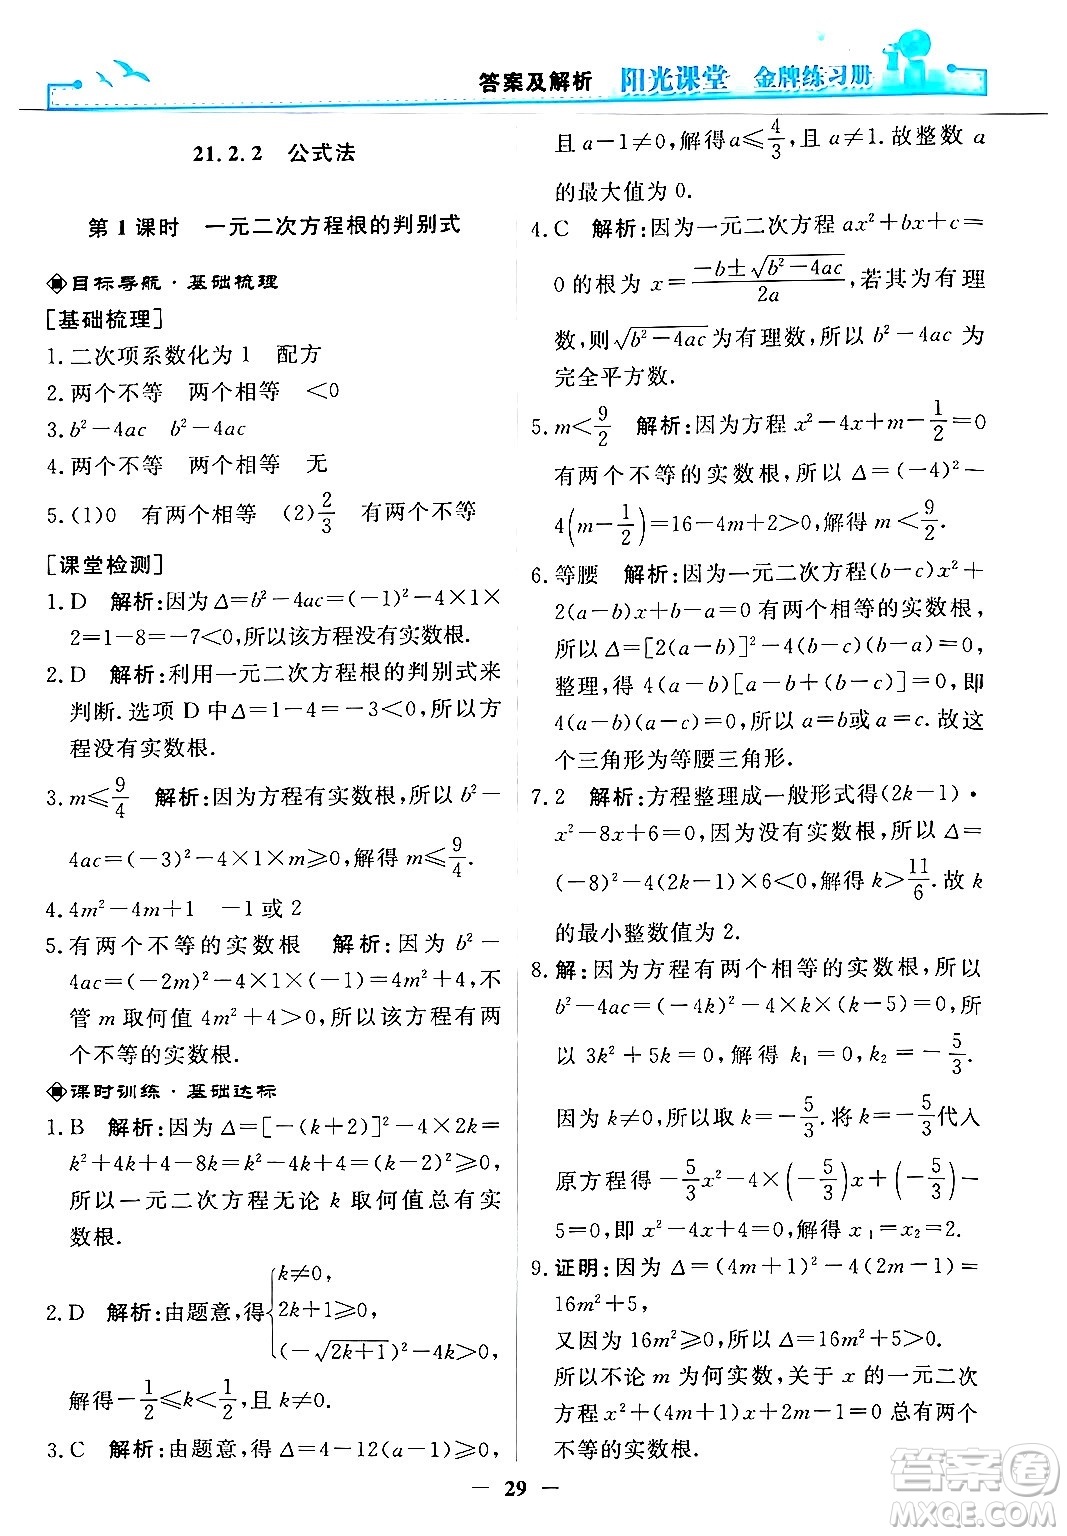 答案及解析 阳光课堂 金牌练习册
21.2.2 公式法
第1课时 一元二次方程根的判别式
目标导航·基础梳理
[基础梳理]
1.二次项系数化为1 配方
2.两个不等 两个相等 <0
3.b²-4ac b²-4ac
4.两个不等 两个相等 无
5.(1)0 有两个相等 (2)2/3 有两个不等
[课堂检测]
1.D 解析:因为Δ=b²-4ac=(-1)²-4×1×
2=1-8=-7<0,所以该方程没有实数根.
2.D 解析:利用一元二次方程根的判别式来
判断.选项D中Δ=1-4=-3<0,所以方
程没有实数根.
3.m≤9/4 解析:因为方程有实数根,所以b²-
4ac=(-3)²-4×1×m≥0,解得m≤9/4.
4.4m²-4m+1 -1或2
5.有两个不等的实数根 解析:因为b²-
4ac=(-2m)²-4×1×(-1)=4m²+4,不
管m取何值4m²+4>0,所以该方程有两
个不等的实数根.
课时训练·基础达标
1.B 解析:因为Δ=[-(k+2)]²-4×2k=
k²+4k+4-8k=k²-4k+4=(k-2)²≥0,
所以一元二次方程无论k取何值总有实
数根.
2.D 解析:由题意,得{k≠0,
2k+1≥0,
(-√(2k+1))²-4k>0,
解得-1/2≤k<1/2,且k≠0.
3.C 解析:由题意,得Δ=4-12(a-1)≥0,
且a-1≠0,解得a≤4/3,且a≠1.故整数a
的最大值为0.
4.C 解析:因为一元二次方程ax²+bx+c=
0的根为x=(-b±√(b²-4ac))/2a,若其为有理
数,则√(b²-4ac)为有理数,所以b²-4ac为
完全平方数.
5.m<9/2 解析:因为方程x²-4x+m-1/2=0
有两个不等的实数根,所以Δ=(-4)²-
4(m-1/2)=16-4m+2>0,解得m<9/2.
6.等腰 解析:因为一元二次方程(b-c)x²+
2(a-b)x+b-a=0有两个相等的实数根,
所以Δ=[2(a-b)]²-4(b-c)(b-a)=0,
整理,得4(a-b)[a-b+(b-c)]=0,即
4(a-b)(a-c)=0,所以a=b或a=c.故这
个三角形为等腰三角形.
7.2 解析:方程整理成一般形式得(2k-1)·
x²-8x+6=0,因为没有实数根,所以Δ=
(-8)²-4(2k-1)×6<0,解得k>11/6.故k
的最小整数值为2.
8.解:因为方程有两个相等的实数根,所以
b²-4ac=(-4k)²-4×k×(k-5)=0,所
以3k²+5k=0,解得k₁=0,k₂=-5/3.
因为k≠0,所以取k=-5/3.将k=-5/3代入
原方程得-5/3x²-4×(-5/3)x+(-5/3)-
5=0,即x²-4x+4=0,解得x₁=x₂=2.
9.证明:因为Δ=(4m+1)²-4(2m-1)=
16m²+5,
又因为16m²≥0,所以Δ=16m²+5>0.
所以不论m为何实数,关于x的一元二次
方程x²+(4m+1)x+2m-1=0总有两个
不等的实数根.
29
答案圈
MXQE.COM